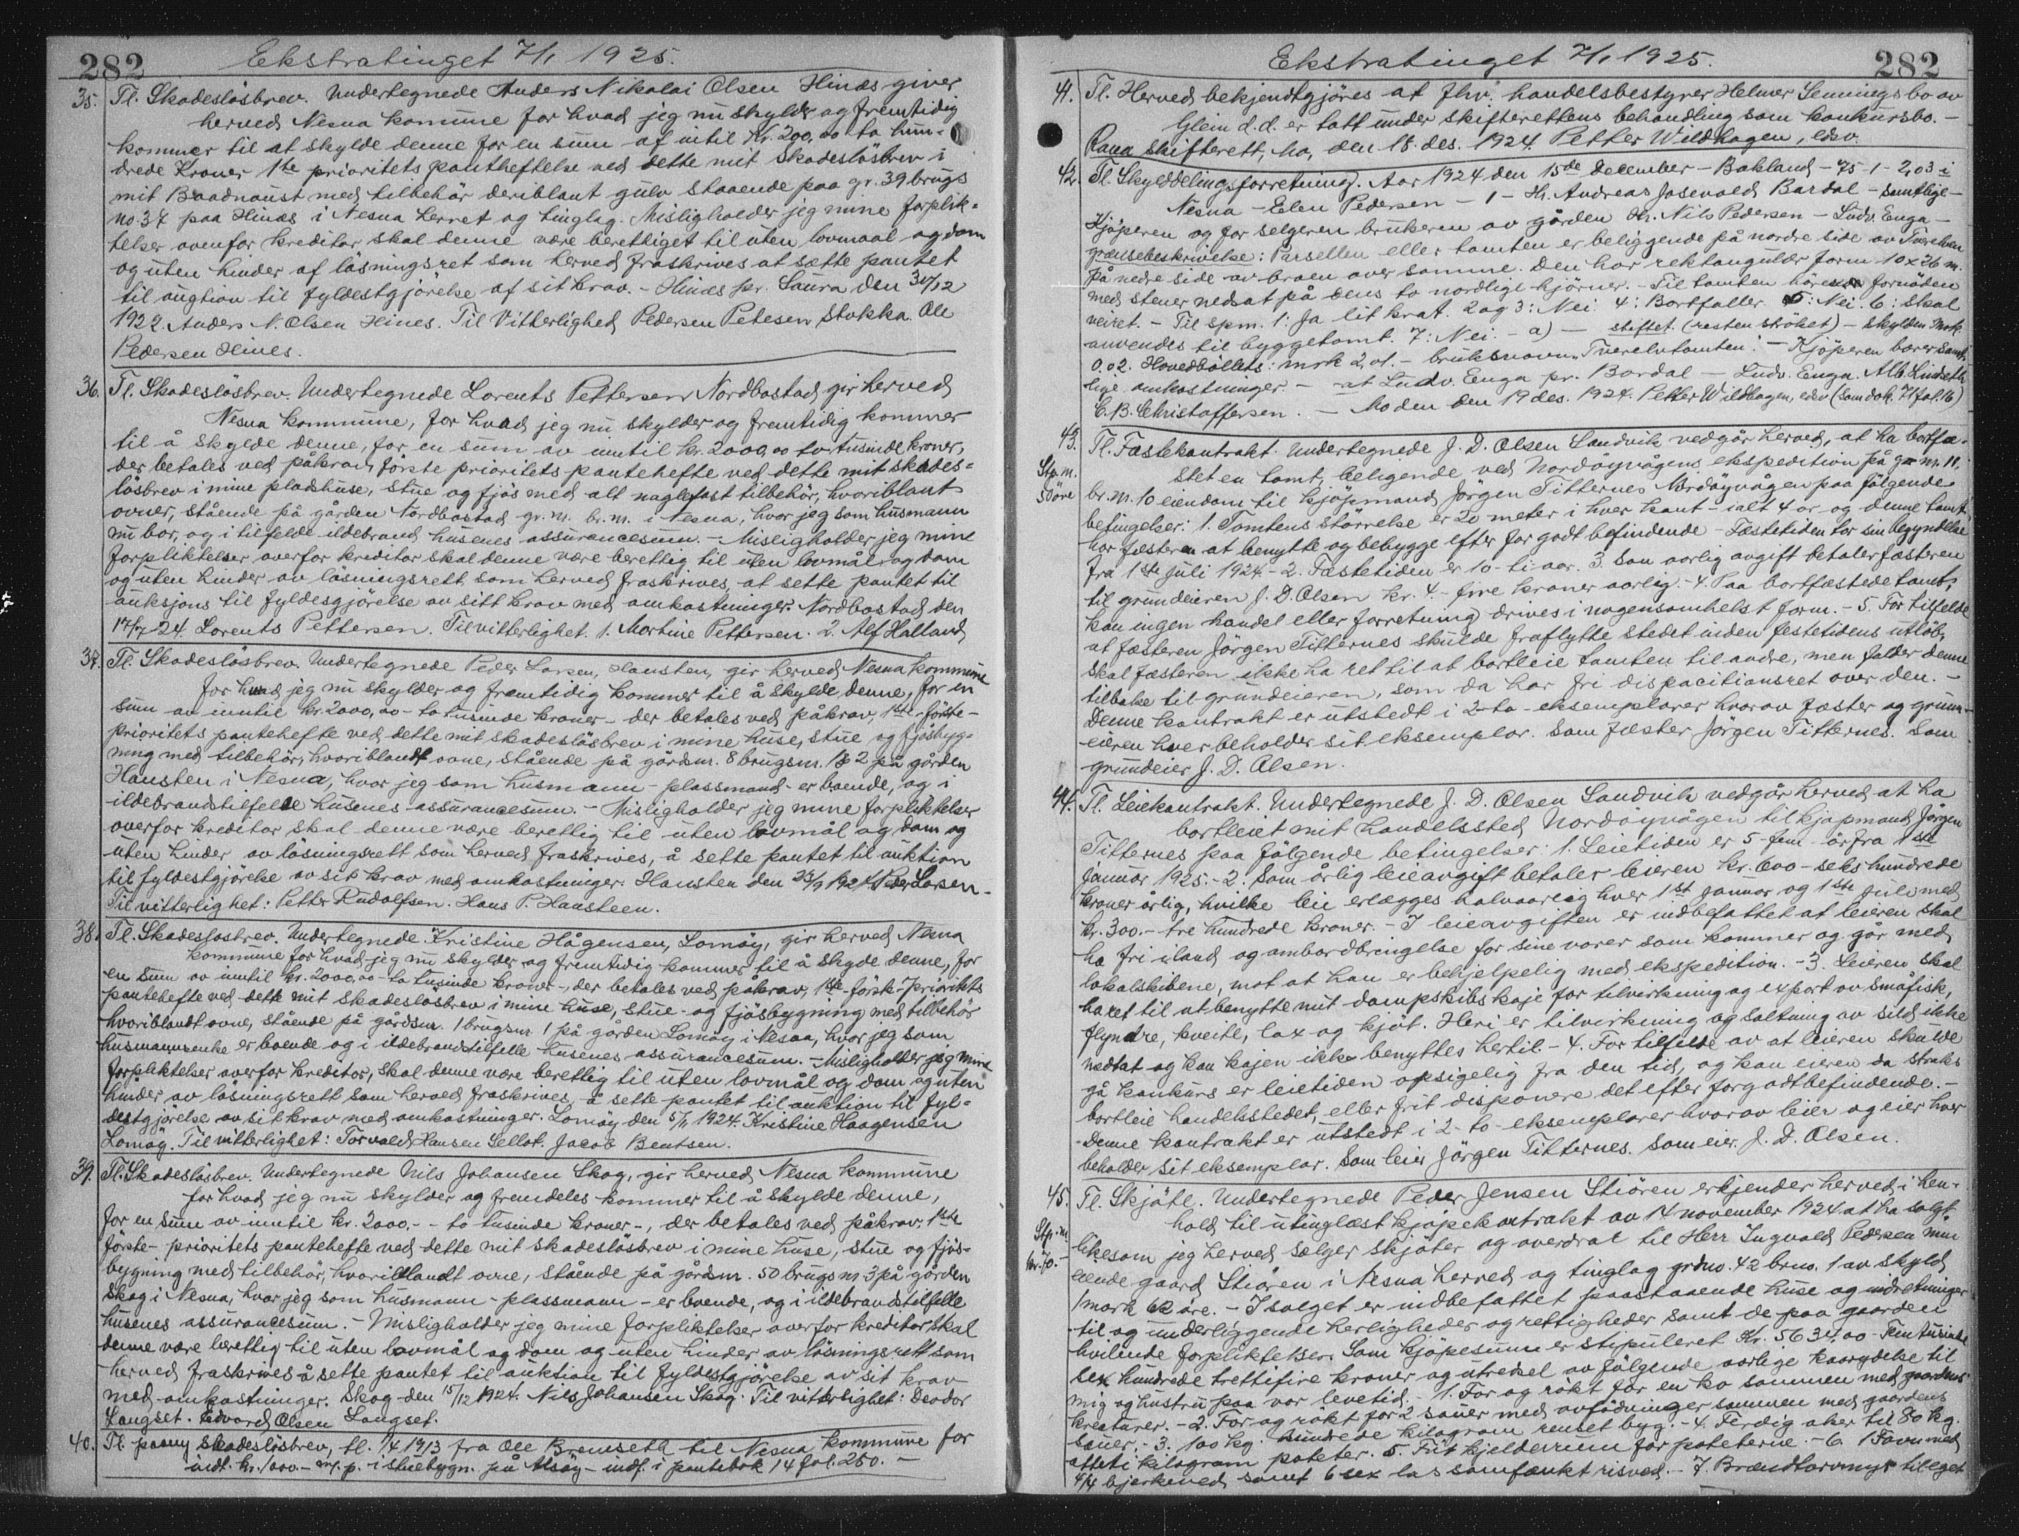 282
Ekstratinget 7/1 1925.
35. Tl. Skadeslösbrev. Undertegnede Anders Nikolai Olsen Hines giver
herved Nesna Komune for hvad jeg nu skylder og fremtidig
kommer til at skylde denne for en sum af intil Kr. 200,00 to hun=
drede Kroner 1ste prioritets pantheftelse ved dette mit Skadeslösbrev i
mit Baadnaust med tilbehör deriblant gulv staaende paa gr. 39 brugs
no. 37 paa Hines i Nesna herret og tinglag. Misligholder jeg mine forplik=
telser ovenfor kreditor skal denne være berettiget til uten lovmaal og dom
og uten hinder af läsningsret som herved fraskrives at sætte pantet
til augtion til fyldestgjörelse af sit krav. - Hines pr. Saura den 30/12
1922. Anders N. Olsen Hines. Til Vitterlighed Pedersen Petesen Stokka Ole
Pedersen Hines.
36. Tl. Skadeslösbrev. Undertegnede Lorents Pettersen Nordbostad gir herved
Nesna kommune, for hvad jeg nu skylder og fremtidig kommer
til å skylde denne, for en sum av inntil kr. 2000,00 to tusinde kroner,
der betales ved påkrav, förste prioritets pantehefte ved dette mit skades=
lösbrev i mine pladshuse, stue og fjös med alt naglefast tilbehör, hvoriblant
ovner, stående på gården Nordbostad gr. nr. br. nr. i Nesna, hvor jeg som husmann
nu bor, og i tilfelde ildebrand husenes assurancesum. - Misligholder jeg mine
forpliktelser overfor kreditor skal denne være berettig til uten lovmål og dom
og uten hinder av läsningsrett som herved fraskrives, at sette pantet til
auksjons til fyldesgjörelse av sitt krav med omkostninger. Nordbostad den
17/7 24. Lorents Pettersen. Til vitterlighet. 1. Martine Pettersen. 2. Alf Halland.
37. Tl. Skadeslösbrev. Undertegnede Peder Larsen, Hausten, gir herved Nesna kommune
for hvad jeg nu skylder og fremtidig kommer til å skylde denne, for en
sum av inntil kr. 2000,00 - to tusinde kroner - der betales ved påkrav, 1ste - förste -
prioritets pantehefte ved dette mit skadeslösbrev i mine huse, stue og fjösbyg=
ning med tilbehör, hvoriblandt ovne, stående på gårdsnr. 8 brugsnr. 2 på gården
Hausten i Nesna, hvor jeg som husmann - plassmand - er boende, og i
ildebrandstilfelle husenes assurancesum. - Misligholder jeg mine forpliktelser
overfor kreditor skal denne være berettig til uten lovmål og dom og
uten hinder av läsningsrett som herved fraskrives, å sette pantet til auktion
til fyldestgjörelse av sit krav med omkostninger. Hausten den 23/9 1924 Peder Larsen.
Til vitterlighet: Petter Rudolfsen. Hans P. Hausteen.
38. Tl. Skadeslosbrev. Undertegnede Kristine Hågensen, Lomöy, gir herved Nesna
kommune for hvad jeg nu skylder og fremtidig kommer til å skyde denne, for
en sum av inntil kr. 2000,00 - to tusinde kroner -, der betales ved påkrav, 1ste -förste- prioritets
pantehefte ved dette mit skadeslösbrev i mine huse, stue- og fjösbygning med tilbehör
hvoriblandt ovne, stående på gårdsnr. 1 brugsnr 1 på gården Lomöy i Nesna, hvor jeg som
husmannsenke er boende og i ildebrandstilfelle husenes assurancesum. - Misligholder jeg mine
forpliktelser overfor kreditor, skal denne være berettig til uten lovmål og dom og uten
hinder av läsningsrett som herved fraskrives, å sette pantet til auktion til fyl=
destgjörelse av sit krav med omkostninger. Lomöy den 5/11 1924. Kristine Haagensen
Lomöy. Til vitterlighet: Torvald Hansen Sellot. Jacob Bentsen.
39. Tl. Skadeslösbrev. Undertegnede Nils Johansen Skog, gir herved Nesna kommune
for hvad jeg nu skylder og fremdeles kommer til å skylde denne,
for en sum av inntil kr. 2000.- - to tusinde kroner -, der betales ved påkrav, 1ste
förste- prioritets pantehefte ved dette mit skadeslösbrev i mine huse, stue og fjös=
bygning med tilbehör, hvoriblandt ovne, stående på gårdsnr. 50 brugsnr 3 på gården
Skog i Nesna, hvor jeg som husmann - plassmann - er boende, og i ildebrandstilfelle
husenes assurancesum. - Misligholder jeg mine forpliktelser overfor kreditor skal
denne være berettig til uten lovmål og dom og uten hinder av läsningsrett som
herved fraskrives å sette pantet til auktion til fyldestgjörelse av sit krav
med omkostninger. Skog den 15/12 1924. Nils Johansen Skog. Til vitterlighet: Deodor
Langset. Edvard Olsen Langset.
40. Tl. paany Skadeslösbrev, tl. 1/4 1913 fra Ole Bremseth til Nesna kommune for
indt. kr. 1000.- m. p. i stuebygn. på Alsöy - indf. i pantebok 14 fol. 250. -
282
Ekstratinget 7/1 1925.
41. Tl. Herved bekjendtgjöres at fhv. handelsbestyrer Helmer Senningsbo av
Glein d.d. er tatt under skifterettens behandling som konkursbo. -
Rana skifterett, Mo, den 18. des. 1924. Petter Wildhagen, edsv.
42. Tl. Skylddelingsforretning. Aar 1924 den 15de december - Bakland - 75 - 1 - 2,03 i
Nesna - Elen Pedersen - 1 - Hr. Andreas Josevald Bardal - samtlige -
Kjöperen og for selgeren brukeren av gården Hr. Nils Pedersen - Ludv. Enga -
grænsebeskrivelse: Parsellen eller tomten er beliggende på nordre side av Tverelven
på nedre side av broen over samme. Den har rektangulær form 10 x 26 m.
med stener nedsat på dens to nordlige hjörner. - Til tomten hörer fornöden
veiret. - Til spm. 1: Ja lit krat. 2 og 3: Nei 4: Bortfaller 5: Nei. 6: Skal
anvendes til byggetomt. 7: Nei - a) - stiftet. (resten ströket) - Skylden Mrk.
0.02. Hovedböllets: mrk 2,01. - bruksnavn "Tverelvtomten". - Kjöperen bærer samt=
lige omkostninger. - at Ludv. Enga pr. Bardal - Ludv. Enga. Alb. Lindseth
C. B. Christoffersen. - Mo den 19 des. 1924. Petter Wildhagen, edsv (som dok. 71 fol. 16)
43. Tl. Fæstekontrakt. Undertegnede J. D. Olsen Sandvik vedgår herved, at ha bortfæ=
Stp. m. stet en tomt, beligende ved Nordöyvågens ekspedition på g. nr. 11.
50 öre br. nr. 10 eiendom til kjöpmand Jörgen Titternes Nordöyvågen paa fölgende
betingelser: 1. Tomtens störrelse er 20 meter i hver kant - ialt 4 ar. og denne tomt
har fæsteren at benytte og bebygge efter for godt befindende. Fæstetiden tar sin begyndelse
fra 1ste juli 1924. - 2. Fæstetiden er 10 - ti aar. 3. Som aarlig avgift betaler fæsteren
til grundeieren J. D. Olsen kr. 4. - fire kroner aarlig. - 4. Paa bortfæstede tomt,
kan ingen handel eller forretning drives i nogensomhelst form. - 5. For tilfelde
at fæsteren Jörgen Titternes skulde fraflytte stedet inden festetidens utlöb,
skal fæsteren ikke ha ret til at bortleie tomten til andre, men falder denne
tilbake til grundeieren, som da har fri dispositionsret over den. -
Denne kontrakt er utstedt i 2 - to - eksemplarer hvorav fæster og grunn=
eieren hver beholder sit eksemplar. Som fæster Jörgen Titternes. Som
grundeier J. D. Olsen.
44. Tl. Leiekontrakt. Undertegnede J. D. Olsen Sandvik vedgår herved at ha
bortleiet mit handelssted Nordöyvågen til kjöpmand Jörgen
Titternes paa fölgende betingelser: 1. Leietiden er 5 - fem - år fra 1ste
januar 1925. - 2. Som årlig leieavgift betaler leieren kr. 600 - seks hundrede
kroner årlig, hvilke leie erlægges halvaarlig hver 1st januar og 1ste juli med
kr. 300. - tre hundrede kroner. - I leieavgiften er indbefattet at leieren skal
ha fri iland og ombordbringelse for sine varer som kommer og går med
lokalskibene, mot at han er behjelpelig med ekspedition. - 3. Leieren skal
ha ret til at benytte mit dampskibskaje for tilvirkning og export av småfisk,
flyndre, kveite, lax og kjöt. Heri er tilvirkning og saltning av sild ikke
medtat og kan kajen ikke benyttes hertil. - 4. For tilfelde av at leieren skulde
gå konkurs er leietiden opsigelig fra den tid, og kan eieren da straks
bortleie handelsstedet, eller frit disponere det efter forgodtbefindende. -
Denne kontrakt er utstedt i 2 - to - eksemplarer hvorav leier og eier hver
beholder sit eksemplar. Som leier Jörgen Titternes. Som eier J. D. Olsen.
45. Tl. Skjöte. Undertegnede Peder Jensen Stiören erkjender herved i hen=
Stp. m. hold til utinglæst kjöpekontrakt av 14 november 1924 at ha solgt
kr. 70.- likesom jeg herved sælger skjöter og overdrar til Herr Ingvald Pedersen min
eiende gaard Stiören i Nesna herred og tinglag grdno. 42 brno. 1 av skyld
1 mark 62 öre. - I salget er indbefattet paastaaende huse og indretninger
til og underliggende herligheder og rettigheder samt de paa gaarden
hvilende forpliktelser. Som kjöpesum er stipuleret Kr. 5634,00 - Fem tusinde
sex hundrede trettifire kroner og utredsel av fölgende aarlige kaarydelse til
mig og hustru paa vor levetid. - 1. For og rökt for en ko sammen med gaardens
kreaturer. - 2. For og rökt for 2 sauer med avfödninger sammen med gaardens
sauer. - 3. 100 kg. hundrede kilogram renset byg. - 4. Ferdig aker til 80 kg.
otteti kilogram poteter. 5. Frit kjelderrum for poteterne. - 6. 1 Favn med
4/4 bjerkeved samt 6 sex las samfænkt risved. - 7. Brændtorvmyr tilleget